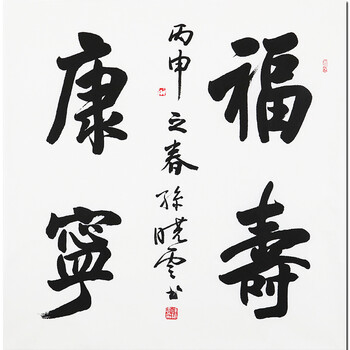 福壽
康寧
丙申之春孫曉雲書